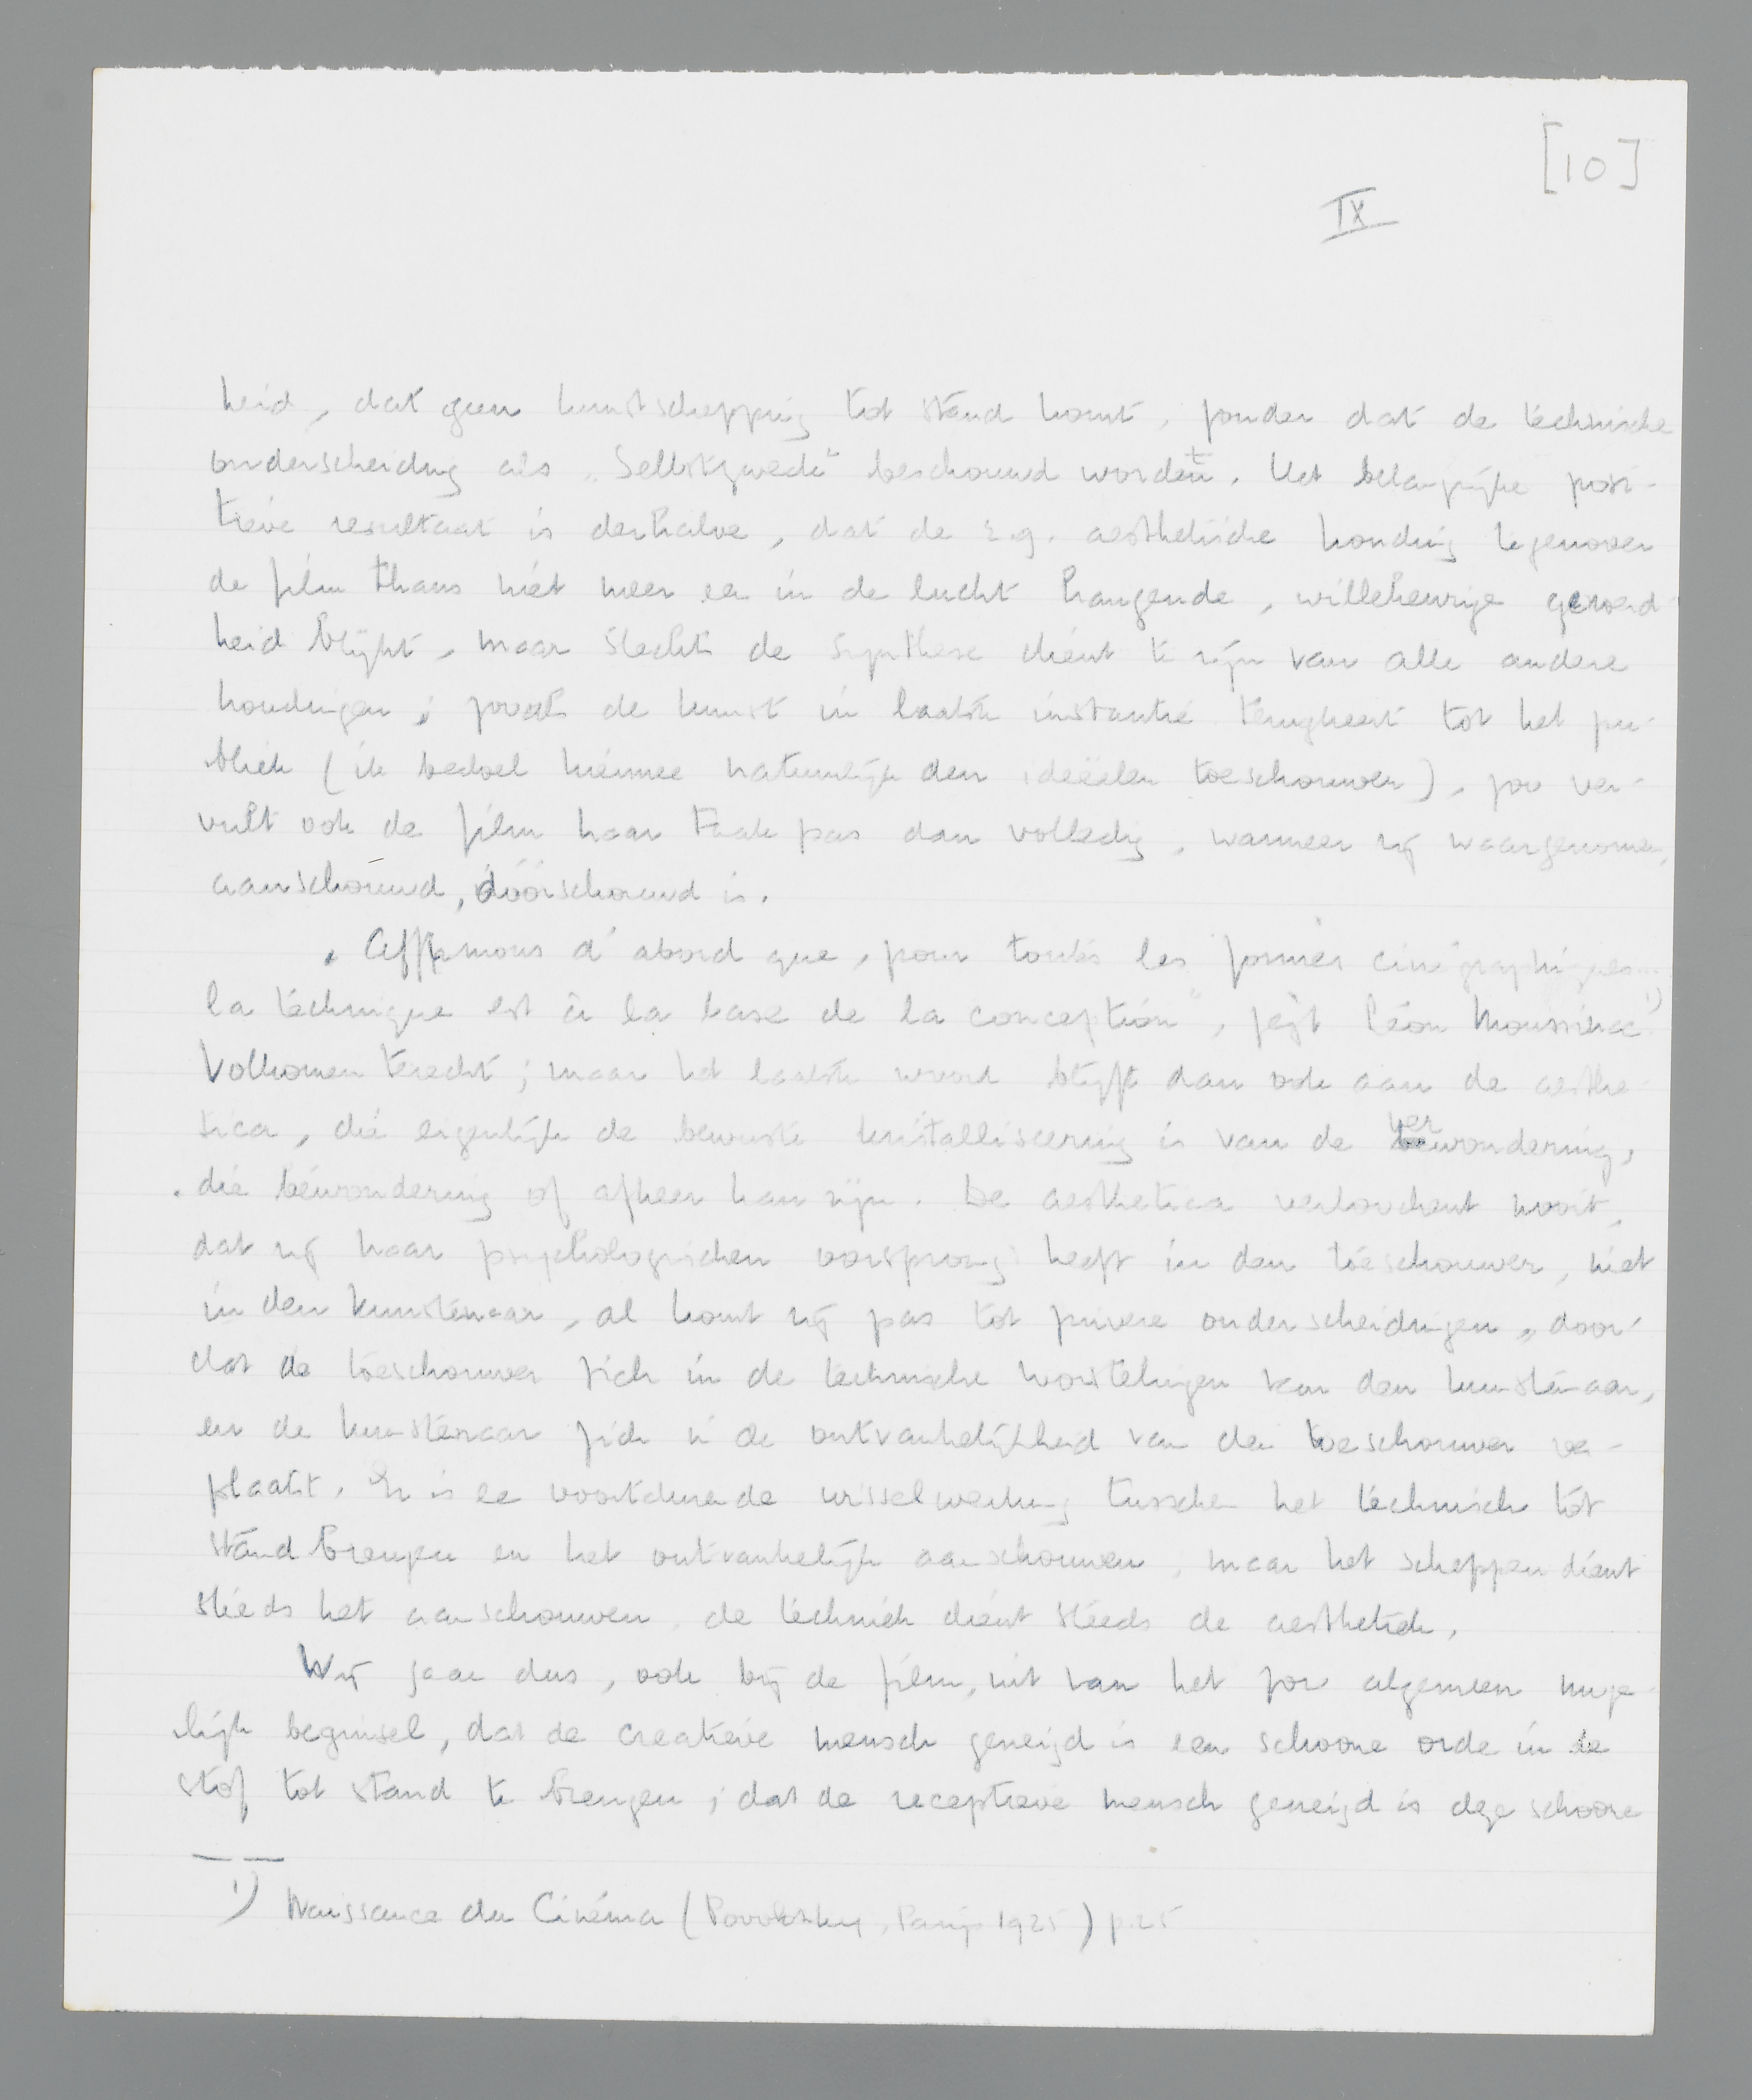 [10]
IX
heid, dat geen kunstschepping tot stand komt, zonder dat de technische
onderscheiding als „Selbstzweck" beschouwd wordt. Het belangrijke posi-
tieve resultaat is derhalve, dat de z.g. aesthetische houding tegenover
de film thans niet meer een in de lucht hangende, willekeurige
heid blijkt, maar slechts de synthese dient te zijn van alle andere
houdingen; zooals de kunst in laatste instantie terugkeert tot het pu-
bliek (ik bedoel hiermee natuurlijk den ideëelen toeschouwer), zoo ver-
vult ook de film haar taak pas dan volledig, wanneer zij waargenomen,
aanschouwd, dóórschouwd is.
„Affirmons d'abord que, pour toutes les formes cinégraphiques...
la technique est à la base de la conception", zegt Léon Moussinac 1)
Volkomen terecht; maar het laatste woord blijft dan ook aan de aesthe-
tica, die eigenlijk de bewuste kristalliseering is van de verwondering,
die bewondering of afkeer kan zijn. De aesthetica verloochent nooit,
dat zij haar psychologischen oorsprong heeft in den toeschouwer, niet
in den kunstenaar, al komt zij pas tot zuivere onderscheidingen, door-
dat de toeschouwer zich in de technische worstelingen van den kunstenaar,
en de kunstenaar zich in de ontvankelijkheid van den toeschouwer ver-
plaatst. Er is een voortdurende wisselwerking tusschen het technisch tot
stand brengen en het ontvankelijk aanschouwen, maar het scheppen dient
steeds het aanschouwen, de techniek dient steeds de aesthetiek.
Wij gaan dus, ook bij de film, uit van het zoo algemeen moge-
lijk beginsel, dat de creatieve mensch geneigd is een schoone orde in de
stof tot stand te brengen; dat de receptieve mensch geneigd is deze schoone
1) Naissance du Cinéma (Povolozky, Parijs 1925) p. 25